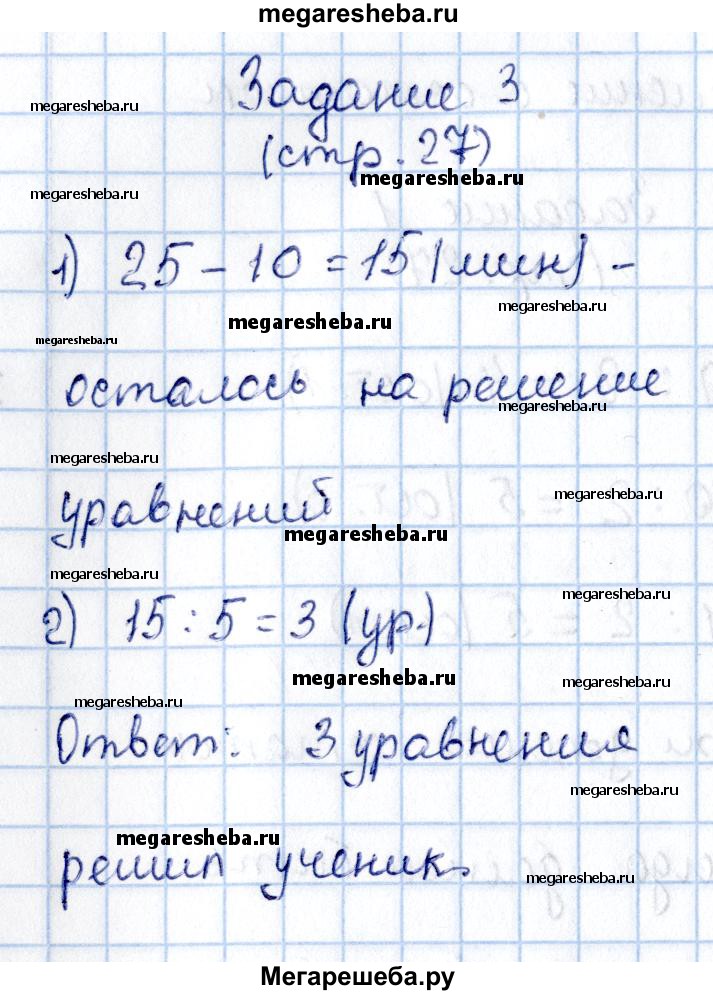 megaresheba.ru
Задание 3
megaresheba.ru
(стр. 27)
megaresheba.ru
megaresheba.ru
1) 25 - 10 = 15 (мин) -
megaresheba.ru
megaresheba.ru
megaresheba.ru
осталось на решение
megaresheba.ru
megaresheba.ru
megaresheba.ru
уравнений
megaresheba.ru
megaresheba.ru
megaresheba.ru
2) 15 : 5 = 3 (ур.)
megaresheba.ru
megaresheba.ru
megaresheba.ru
Ответ: 3 уравнения
megaresheba.ru
megaresheba.ru
решил ученик.
megaresheba.ru
Мегарешеба.ру